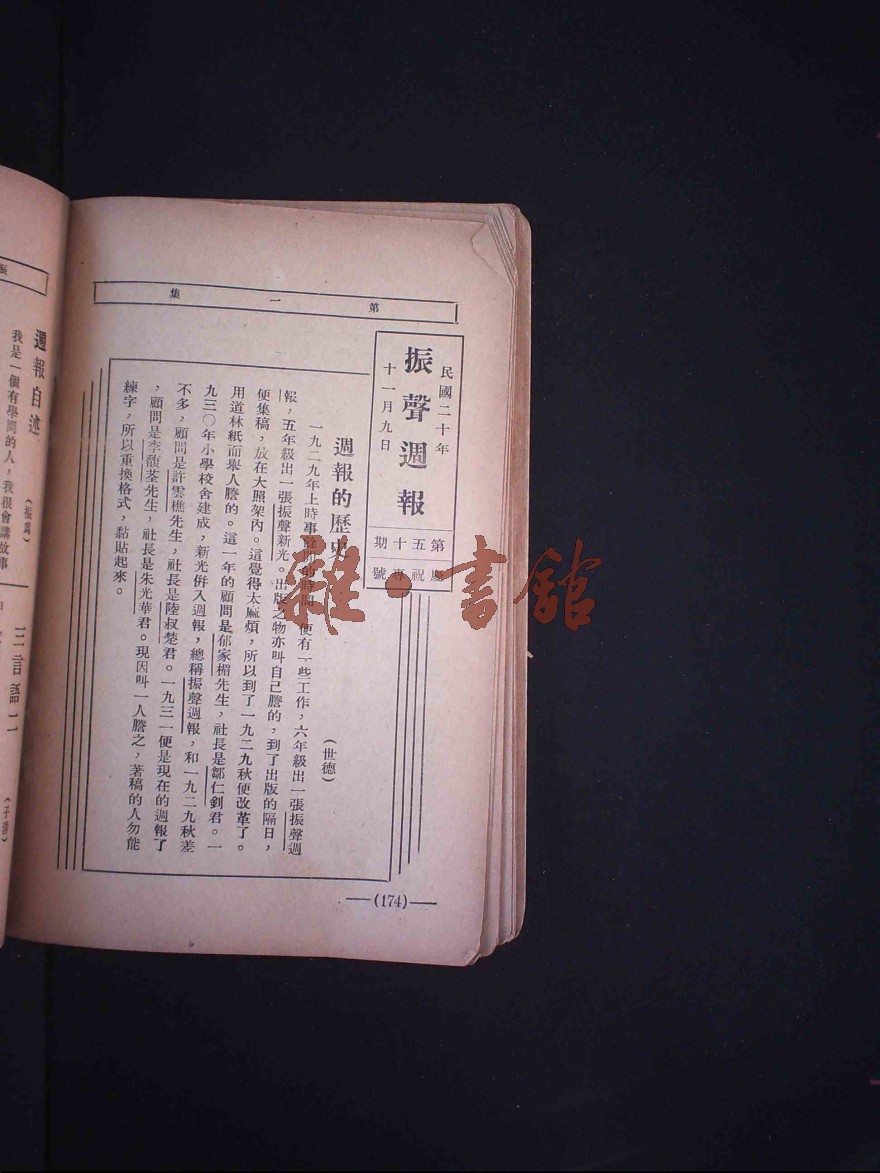 第一集
民國二十年
十一月九日
振聲週報
第五十期
慶祝專號
週報的歷史
（世德）
一九二九年上時事餘閒的時間，便有一些工作，六年級出一張振聲週
報，五年級出一張振聲新光。出版之物亦叫自己謄的，到了出版的隔日，
便集稿，放在大照架內。這覺得太麻煩，所以到了一九二九秋便改革了。
用道林紙而舉人謄的。這一年的顧問是郁家楣先生，社長是鄒仁釗君。一
九三〇年小學校舍建成，新光併入週報，總稱振聲週報，和一九二九秋差
不多，顧問是許雲樵先生，社長是陸叔楚君。一九三一便是現在的週報了
，顧問是李馥荃先生，社長是朱光華君。現因叫一人謄之，著稿的人勿能
練字，所以重換格式，黏貼起來。
(174)
週報自述
我是一個有學問的人，我很會講故事
三言語二
雜·書館